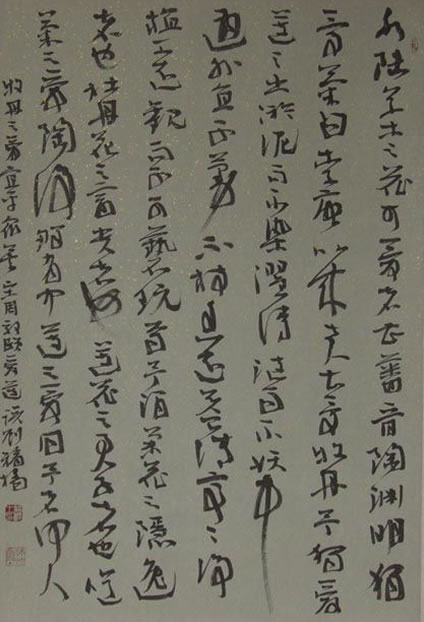 水陸草木之花可愛者甚蕃晉陶淵明獨
愛菊自李唐以來世人甚愛牡丹予獨愛
蓮之出淤泥而不染濯清漣而不妖中
通外直不蔓不枝香遠益清亭亭淨
植可遠觀而不可褻玩焉予謂菊花之隱逸
者也牡丹花之富貴者也蓮花之君子者也噫
菊之愛陶後鮮有聞蓮之愛同予者何人
牡丹之愛宜乎衆矣 周敦頤愛蓮說